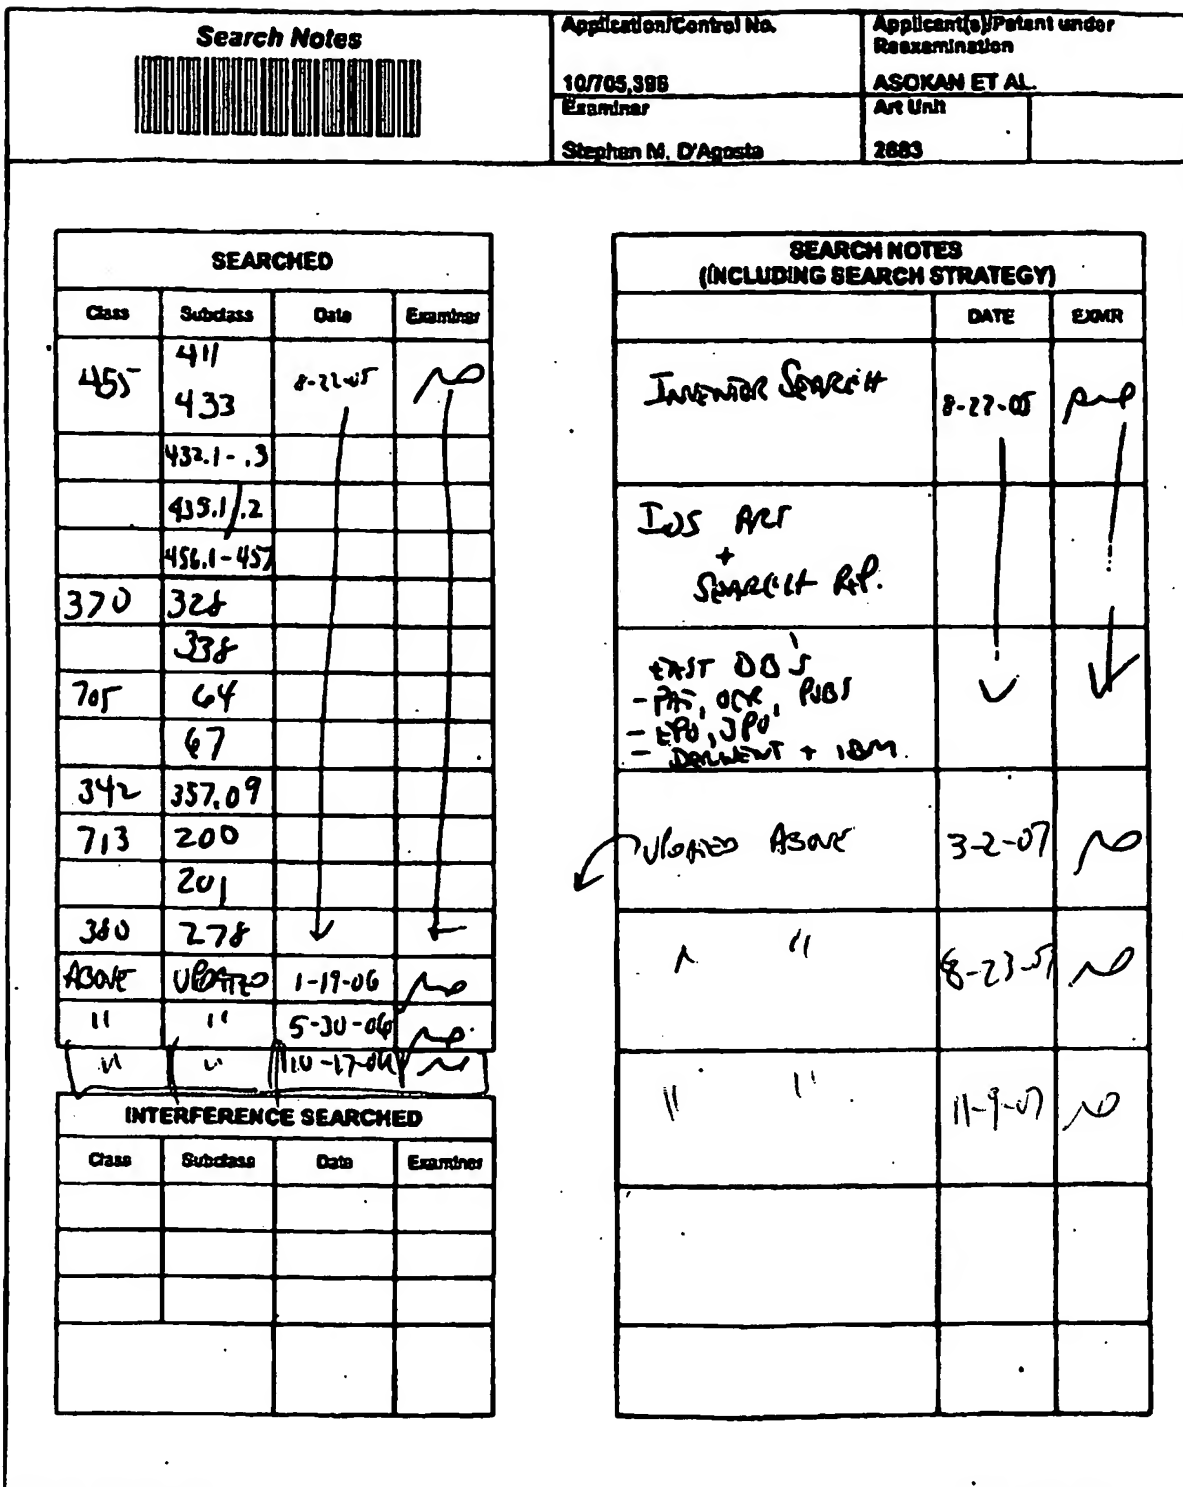 Search Notes
Application/Control No.
10/705,396
Applicant(s)/Patent under
Reexamination
ASOKAN ET AL.
Examiner
Stephen M. D'Agosta
Art Unit
2683
SEARCHED
Class Subclass Date Examiner
455 411 8-22-05
433
432.1-.3
435.1/.2
456.1-457
370 328
338
705 64
67
342 357.09
713 200
201
380 278
ABOVE UPDATED 1-19-06
" " 5-30-06
" " 10-17-06
INTERFERENCE SEARCHED
Class Subclass Date Examiner
SEARCH NOTES
(INCLUDING SEARCH STRATEGY)
DATE EXMR
INVENTOR SEARCH 8-22-05
IDS ART
+
SEARCH REP.
EAST DB'S
- PAT, OCR, PUBS
- EPO, JPO
- DERWENT + IBM
UPDATED ABOVE 3-2-07
" " 8-23-07
" " 11-9-07